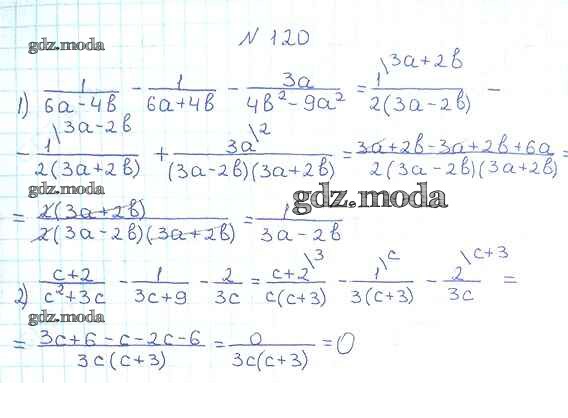 N 120
gdz.moda
1) 1/(6a-4b) - 1/(6a+4b) - 3a/(4b²-9a²) = 1\3a+2b/(2(3a-2b)) -
- 1\3a-2b/(2(3a+2b)) + 3a\2/((3a-2b)(3a+2b)) = (3a+2b-3a+2b+6a)/(2(3a-2b)(3a+2b)) =
gdz.moda
gdz.moda
= 2(3a+2b)/(2(3a-2b)(3a+2b)) = 1/(3a-2b)
2) (c+2)/(c²+3c) - 1/(3c+9) - 2/(3c) = c+2\3/(c(c+3)) - 1\c/(3(c+3)) - 2\c+3/(3c) =
gdz.moda
= (3c+6-c-2c-6)/(3c(c+3)) = 0/(3c(c+3)) = 0